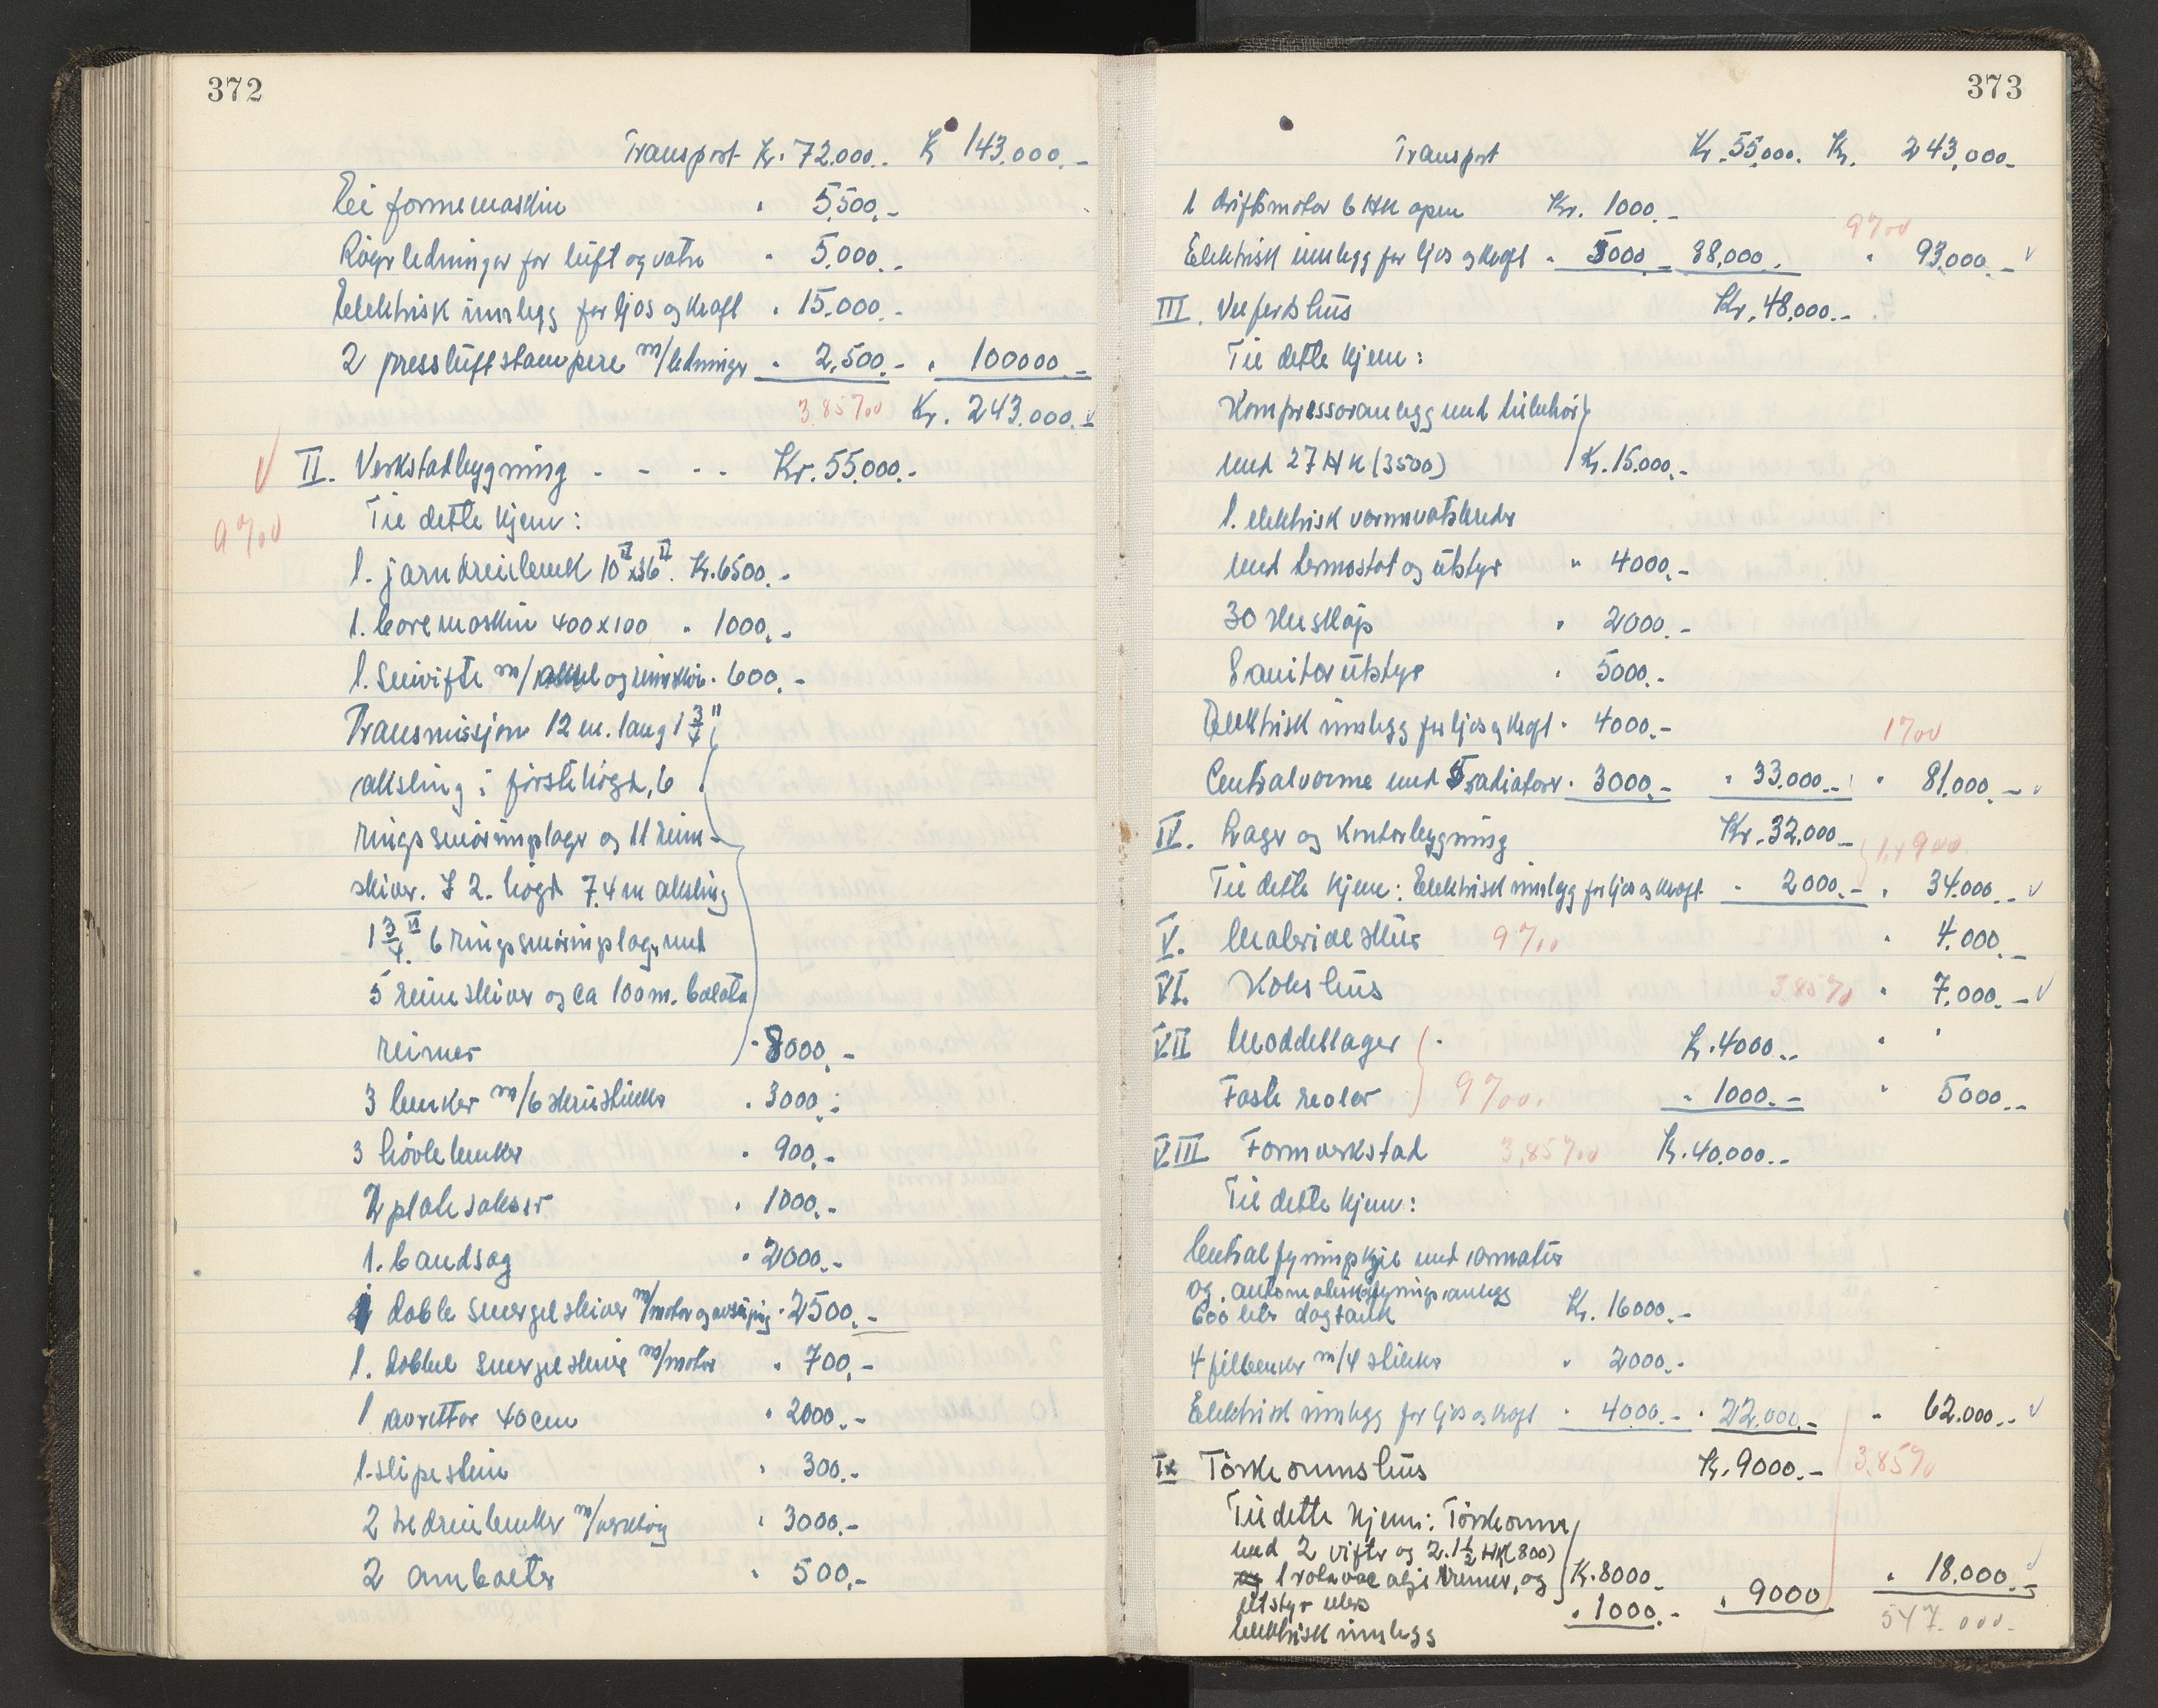 372
Transport Kr. 72.000.. Kr 143.000.-
Ei formemaskin " 5.500.-
Røyrledninger for luft og vatn " 5.000.-
Elektrisk innlegg for ljos og kraft " 15.000.-
2 pressluftstampere m/ledninger " 2.500.- " 100000.-
3.85‰ Kr. 243.000.-
II. Verkstadbygning - - - - Kr. 55.000.-
9‰
Til dette kjem:
1. jarndreiebenk 10"x36". Kr. 6500.-
1. boremaskin 400x100 " 1000.-
1. Smivifte m/ aksel og reimskiv " 600.-
Transmissjon 12 m. lang 1 3/4"
aksling i første høgd, 6
ringsmøringslager og 11 reim-
skiver. I 2. høgd 7.4 m aksling
1 3/4" 6 ringsmøringslager med
5 reimskiver og ca 100 m. balata
reimer " 8000.-
3 benker m/6 skrustikker " 3000.-
3 høvlebenker " 900.-
2 platesakser " 1000.-
1. bandsag " 2000.-
doble smergelskiver m/motor og avsuging " 2500.-
1. dobbel smergelskive m/motor " 700.-
1 avrettar 40 cm " 2000.-
1. slipestein " 300.-
2 tredreiebenker m/verktøy " 3000.-
2 ambolter " 500.-
373
Transport Kr. 55.000. Kr. 243.000.-
1 driftsmotor 6 HK open Kr. 1000.-
9‰
Elektrisk innlegg for ljos og kraft " 5000.- 38.000.- " 93.000.-
III. Velferdshus Kr. 48.000.-
Til dette kjem:
Kompressoranlegg med tilbehør
med 27 HK (3500) Kr. 15.000.-
1. elektrisk varmvatsbereder
med termostat og utstyr " 4000.-
30 kleskåp " 2000.-
Sanitærutstyr " 5000.-
Elektrisk innlegg for ljos og kraft " 4000.-
1‰
Centralvarme med 5 radiatorer " 3000.- " 33.000.- " 81.000.-
IV. Lager og kontorbygning Kr. 32.000.-
Til dette kjem: Elektrisk innlegg for ljos og kraft " 2000.- " 34.000.-
V. Materialskur 9‰ " 4.000.-
VI. Kokshus 3.85‰ " 7.000.-
VII Modellager Kr. 4000.- "
Faste reoler 9‰. " 1000.- " 5000.-
VIII Formverkstad 3,85‰ Kr. 40.000.-
Til dette kjem:
Centralfyringskjel med armatur
og automatisk fyringsanlegg
600 liter dagtank Kr. 16000.-
4 filbenker m/4 stikker " 2000.-
Elektrisk innlegg for ljos og kraft " 4000.- " 22.000.- " 62.000.-
IX Tørkeomnshus Kr. 9000.- 3.85‰
Til dette kjem: Tørkeomn
med 2 vifter og 2. 1 1/2 HK (800)
og 1 oljebrenner, og Kr. 8000.-
utstyr " 1000.- " 9000 " 18.000.-
Elektrisk innlegg
547.000.-